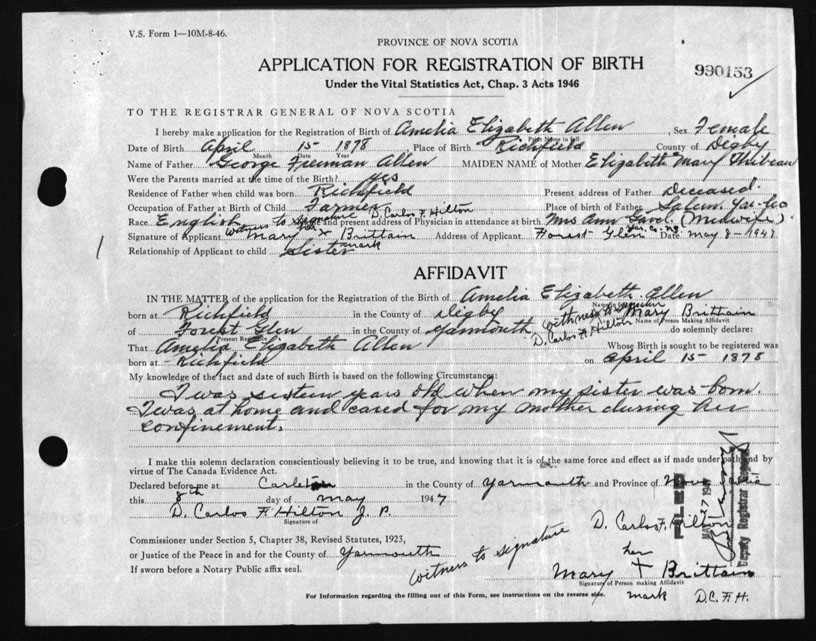 V.S. Form 1—10M-8-46.
PROVINCE OF NOVA SCOTIA
APPLICATION FOR REGISTRATION OF BIRTH
Under the Vital Statistics Act, Chap. 3 Acts 1946
990153
TO THE REGISTRAR GENERAL OF NOVA SCOTIA
I hereby make application for the Registration of Birth of Amelia Elizabeth Allen, Sex Female
Print Name in full
Date of Birth April 15 1878 Place of Birth Richfield County of Digby
Month Date Year
Name of Father George Freeman Allen MAIDEN NAME of Mother Elizabeth Mary
Were the Parents married at the time of Birth? yes
Residence of Father when child was born Richfield Present address of Father Deceased.
Occupation of Father at Birth of Child Farmer Place of birth of Father Salem. Yar. Co
Race English Name and present address of Physician in attendance at birth Mrs Ann (Midwife)
witness to signature D. Carlos F. Hilton
Signature of Applicant Mary her X mark Brittain Address of Applicant Forest Glen Yar. Co. N.S. Date May 8-1947
Relationship of Applicant to child Sister
AFFIDAVIT
IN THE MATTER of the application for the Registration of the Birth of Amelia Elizabeth Allen
Name in full
born at Richfield in the County of Digby Mary Brittain
Name of Person Making Affidavit
witness to signature D. Carlos F. Hilton
of Forest Glen in the County of Yarmouth do solemnly declare:
Present Residence
That Amelia Elizabeth Allen Whose Birth is sought to be registered was
born at Richfield on April 15-1878
My knowledge of the fact and date of such Birth is based on the following Circumstances:
I was sixteen years old when my sister was born.
I was at home and cared for my mother during her
confinement.
I make this solemn declaration conscientiously believing it to be true, and knowing that it is of the same force and effect as if made under oath and by
virtue of The Canada Evidence Act.
Declared before me at Carleton in the County of Yarmouth and Province of Nova Scotia
this 8th day of May 1947
D. Carlos F. Hilton J. P.
Signature of
D. Carlos F. Hilton
FILED
MAY 27 1947
Deputy Registrar General
Commissioner under Section 5, Chapter 38, Revised Statutes, 1923,
or Justice of the Peace in and for the County of Yarmouth
witness to signature
If sworn before a Notary Public affix seal.
Mary her X mark Brittain
Signature of Person making Affidavit
D.C.F.H.
For Information regarding the filling out of this Form, see instructions on the reverse side.